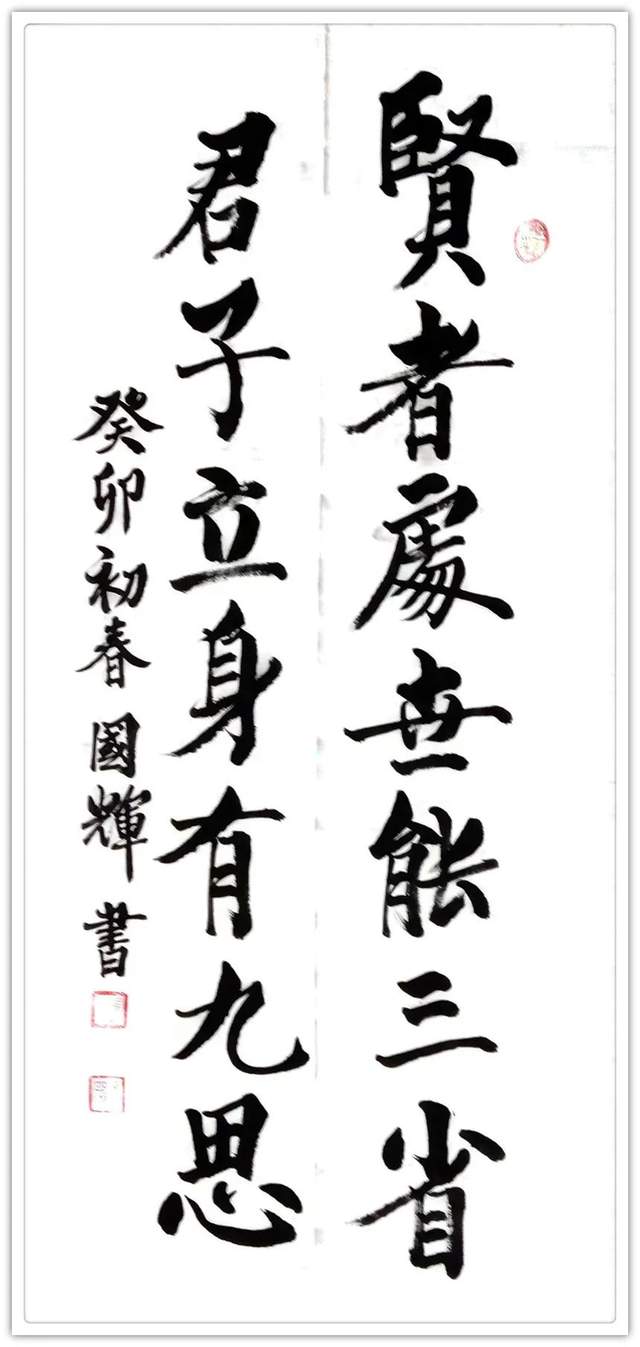 賢者處世能三省
君子立身有九思
癸卯初春國輝書